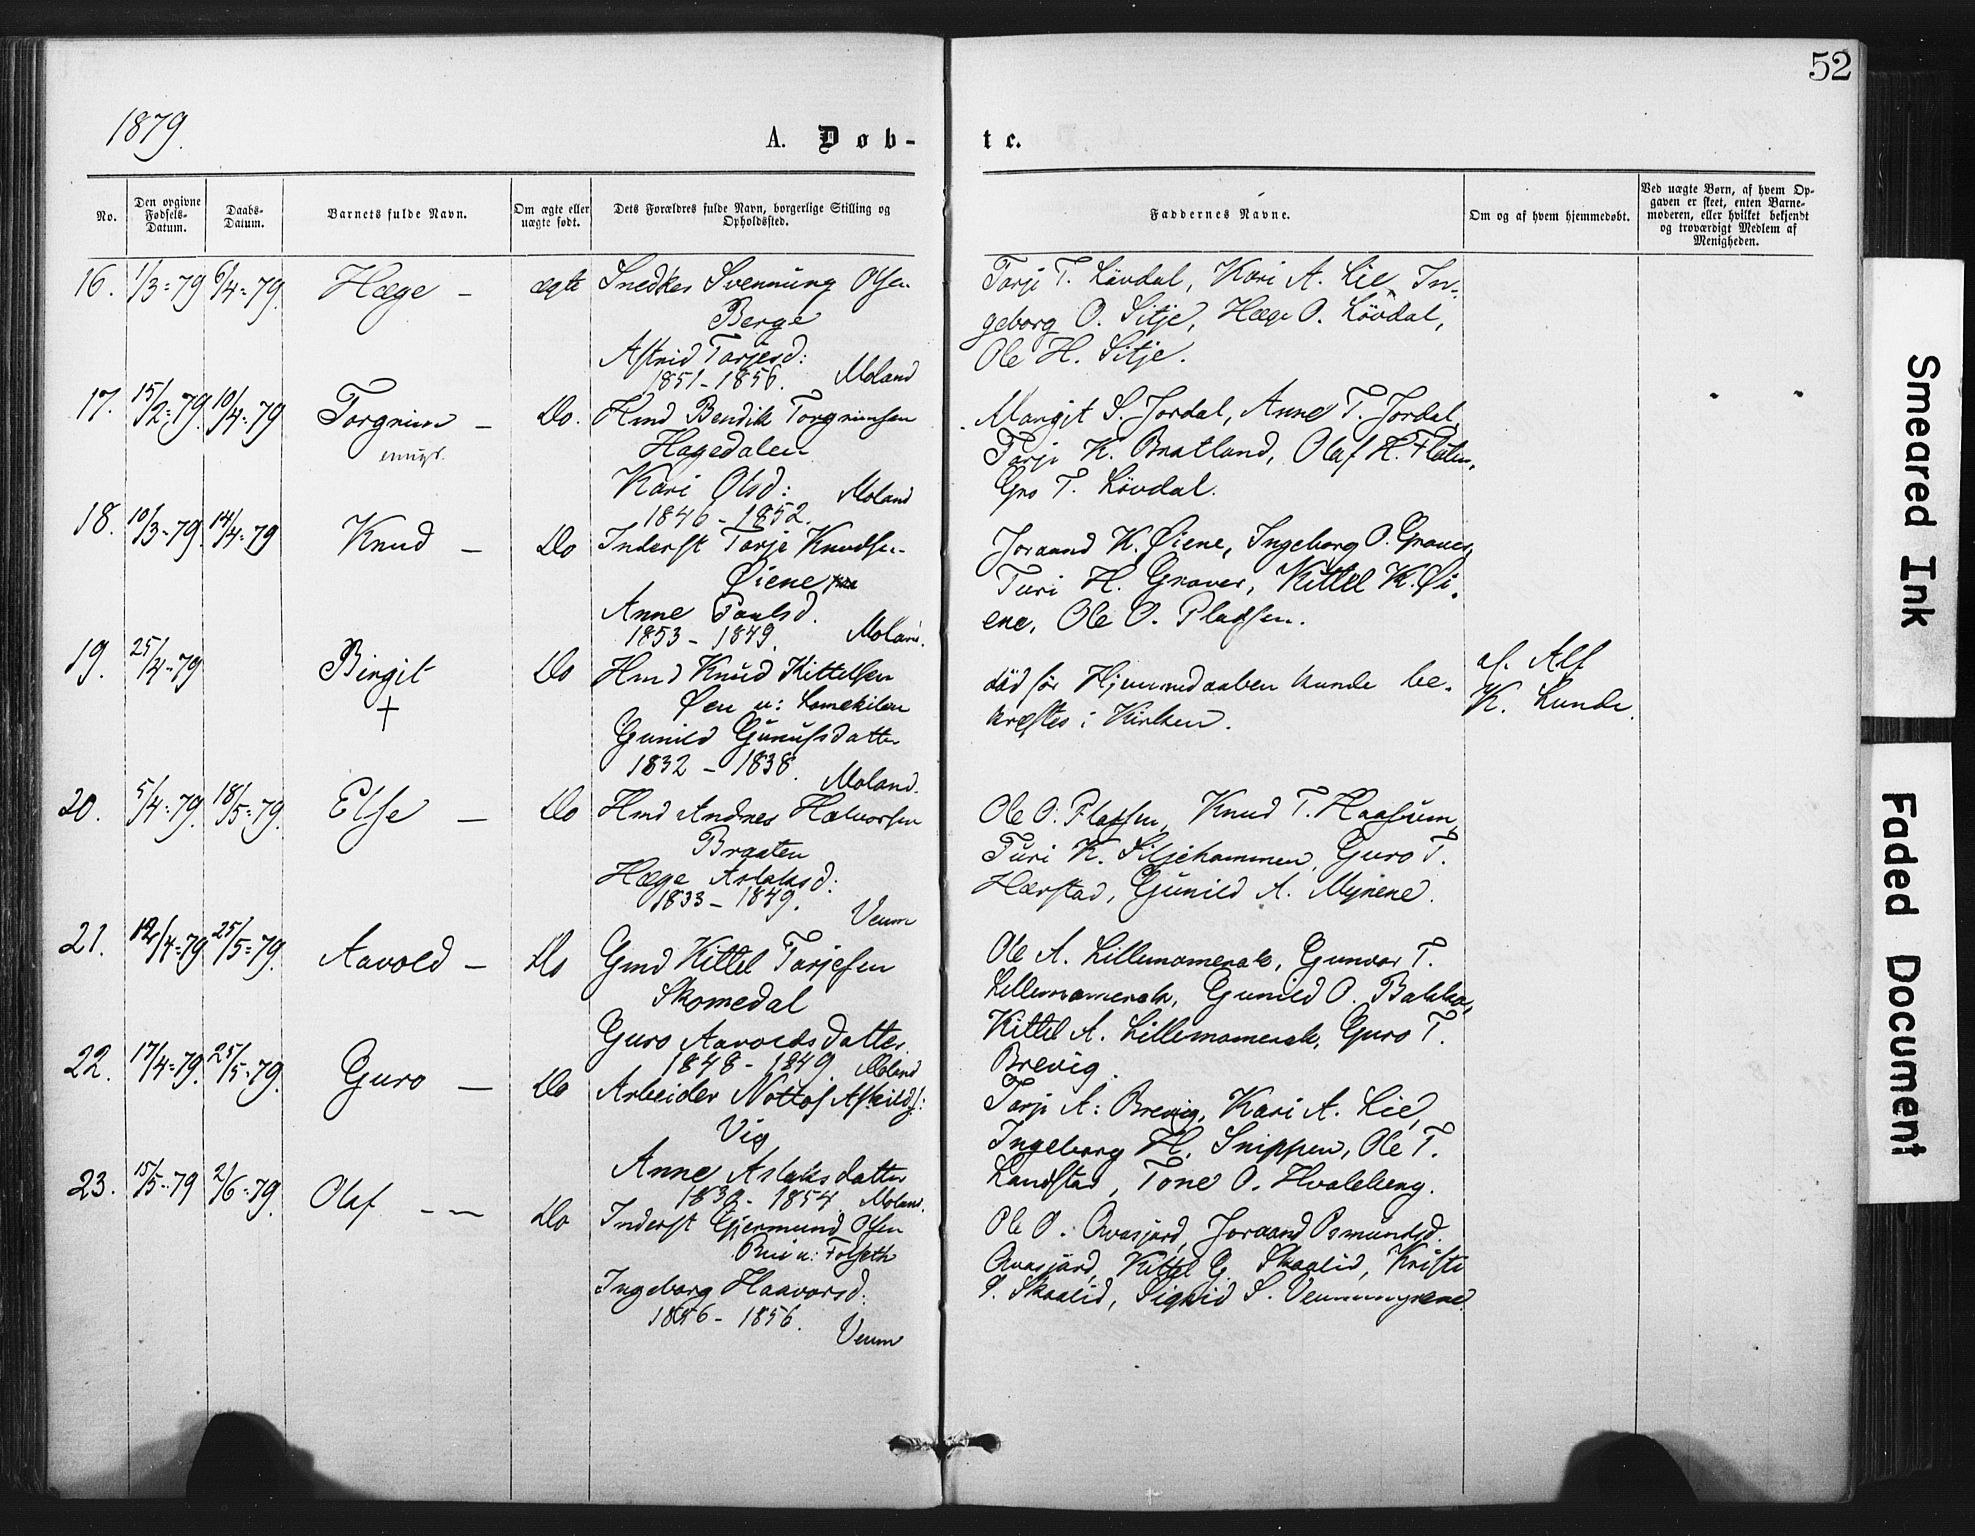 52
1879.
A. Døb-
te.
No.
Den opgivne Fødsels-Datum.
Daabs-Datum.
Barnets fulde Navn.
Om ægte eller uægte født.
Dets Forældres fulde Navn, borgerlige Stilling og Opholdssted.
Faddernes Navne.
Om og af hvem hjemmedøbt.
Ved uægte Børn, af hvem Opgaven er skeet, enten Barnemoderen, eller hvilket bekjendt og troværdigt Medlem af Menigheden.
16. 1/3=79 6/4=79. Hæge – ægte Snedker Svenning Olsen
Berge
Astrid Tarjesd:
1851-1856. Moland
Tarje T. Løvdal, Kari A. Lie, In-
geborg O. Sitje, Hæge O. Løvdal,
Ole H. Sitje.
17. 15/2=79. 10/4=79 Torgrim – Do. Hmd Bendik Torgrimsen
Hagedalen
Kari Olsd: Moland
1846-1852.
Margit S. Jordal, Anne T. Jordal
Tarje K. Bratland, Olaf H. Flaten,
Gro T. Løvdal.
18. 10/3=79. 14/4=79 Knud – Do Inderst Tarje Knudsen
Øiene
Anne Paulsd.
1853-1849. Moland.
Joraand K. Øiene, Ingeborg O. Graver,
Turi H. Graver, Kittel K. Øi-
ene, Ole O. Pladsen.
19. 25/4=79 Birgit † Do Hmd Knud Kittelsen
Øen u: Lomekilen
Gunild Gunulfsdatter
1832-1838. Moland.
død før Hjemmedaaben kunde be-
kræftes i Kirken.
af. Alf
K. Lunde.
20. 5/4=79. 18/5=79. Else – Do Hmd Andres Halvorsen
Braaten
Hæge Aslaksd:
1833-1849. Veum
Ole O. Pladsen, Knud T. Haasum,
Turi K. Siljehammen, Guro T.
Hærstad, Gunild A. Myrene.
21. /4=79 25/5=79. Aavold – Do Gmd Kittel Tarjesen
Skomedal
Guro Aavoldsdatter.
1848-1849. Moland
Ole A. Lillemomerak, Gunvor T.
Lillemomerak, Gunild O. Bakka,
Kittel A. Lillemomerak, Guro T.
Brevig.
22. 17/4=79. 25/5=79. Guro – Do Arbeider Nottof Askilds:
Vig
Anne Aslaksdatter
1839-1854. Moland.
Tarje A: Brevig, Kari A. Lie,
Ingeborg H. Snippen, Ole T.
Landstad, Tone O. Hvaleberg.
23. 15/5=79 2/6=79. Olaf – Do Inderst Gjermund Olsen
u: Folseth
Ingeborg Haavorsd:
1856. Veum
Ole O: Avasjord, Joraand Osmundsd.
Avasjord, Kittel G. Skaalid, Kristi
S. Skaalid, Sigrid S. Veummyrene.
Smeared Ink
Faded Document